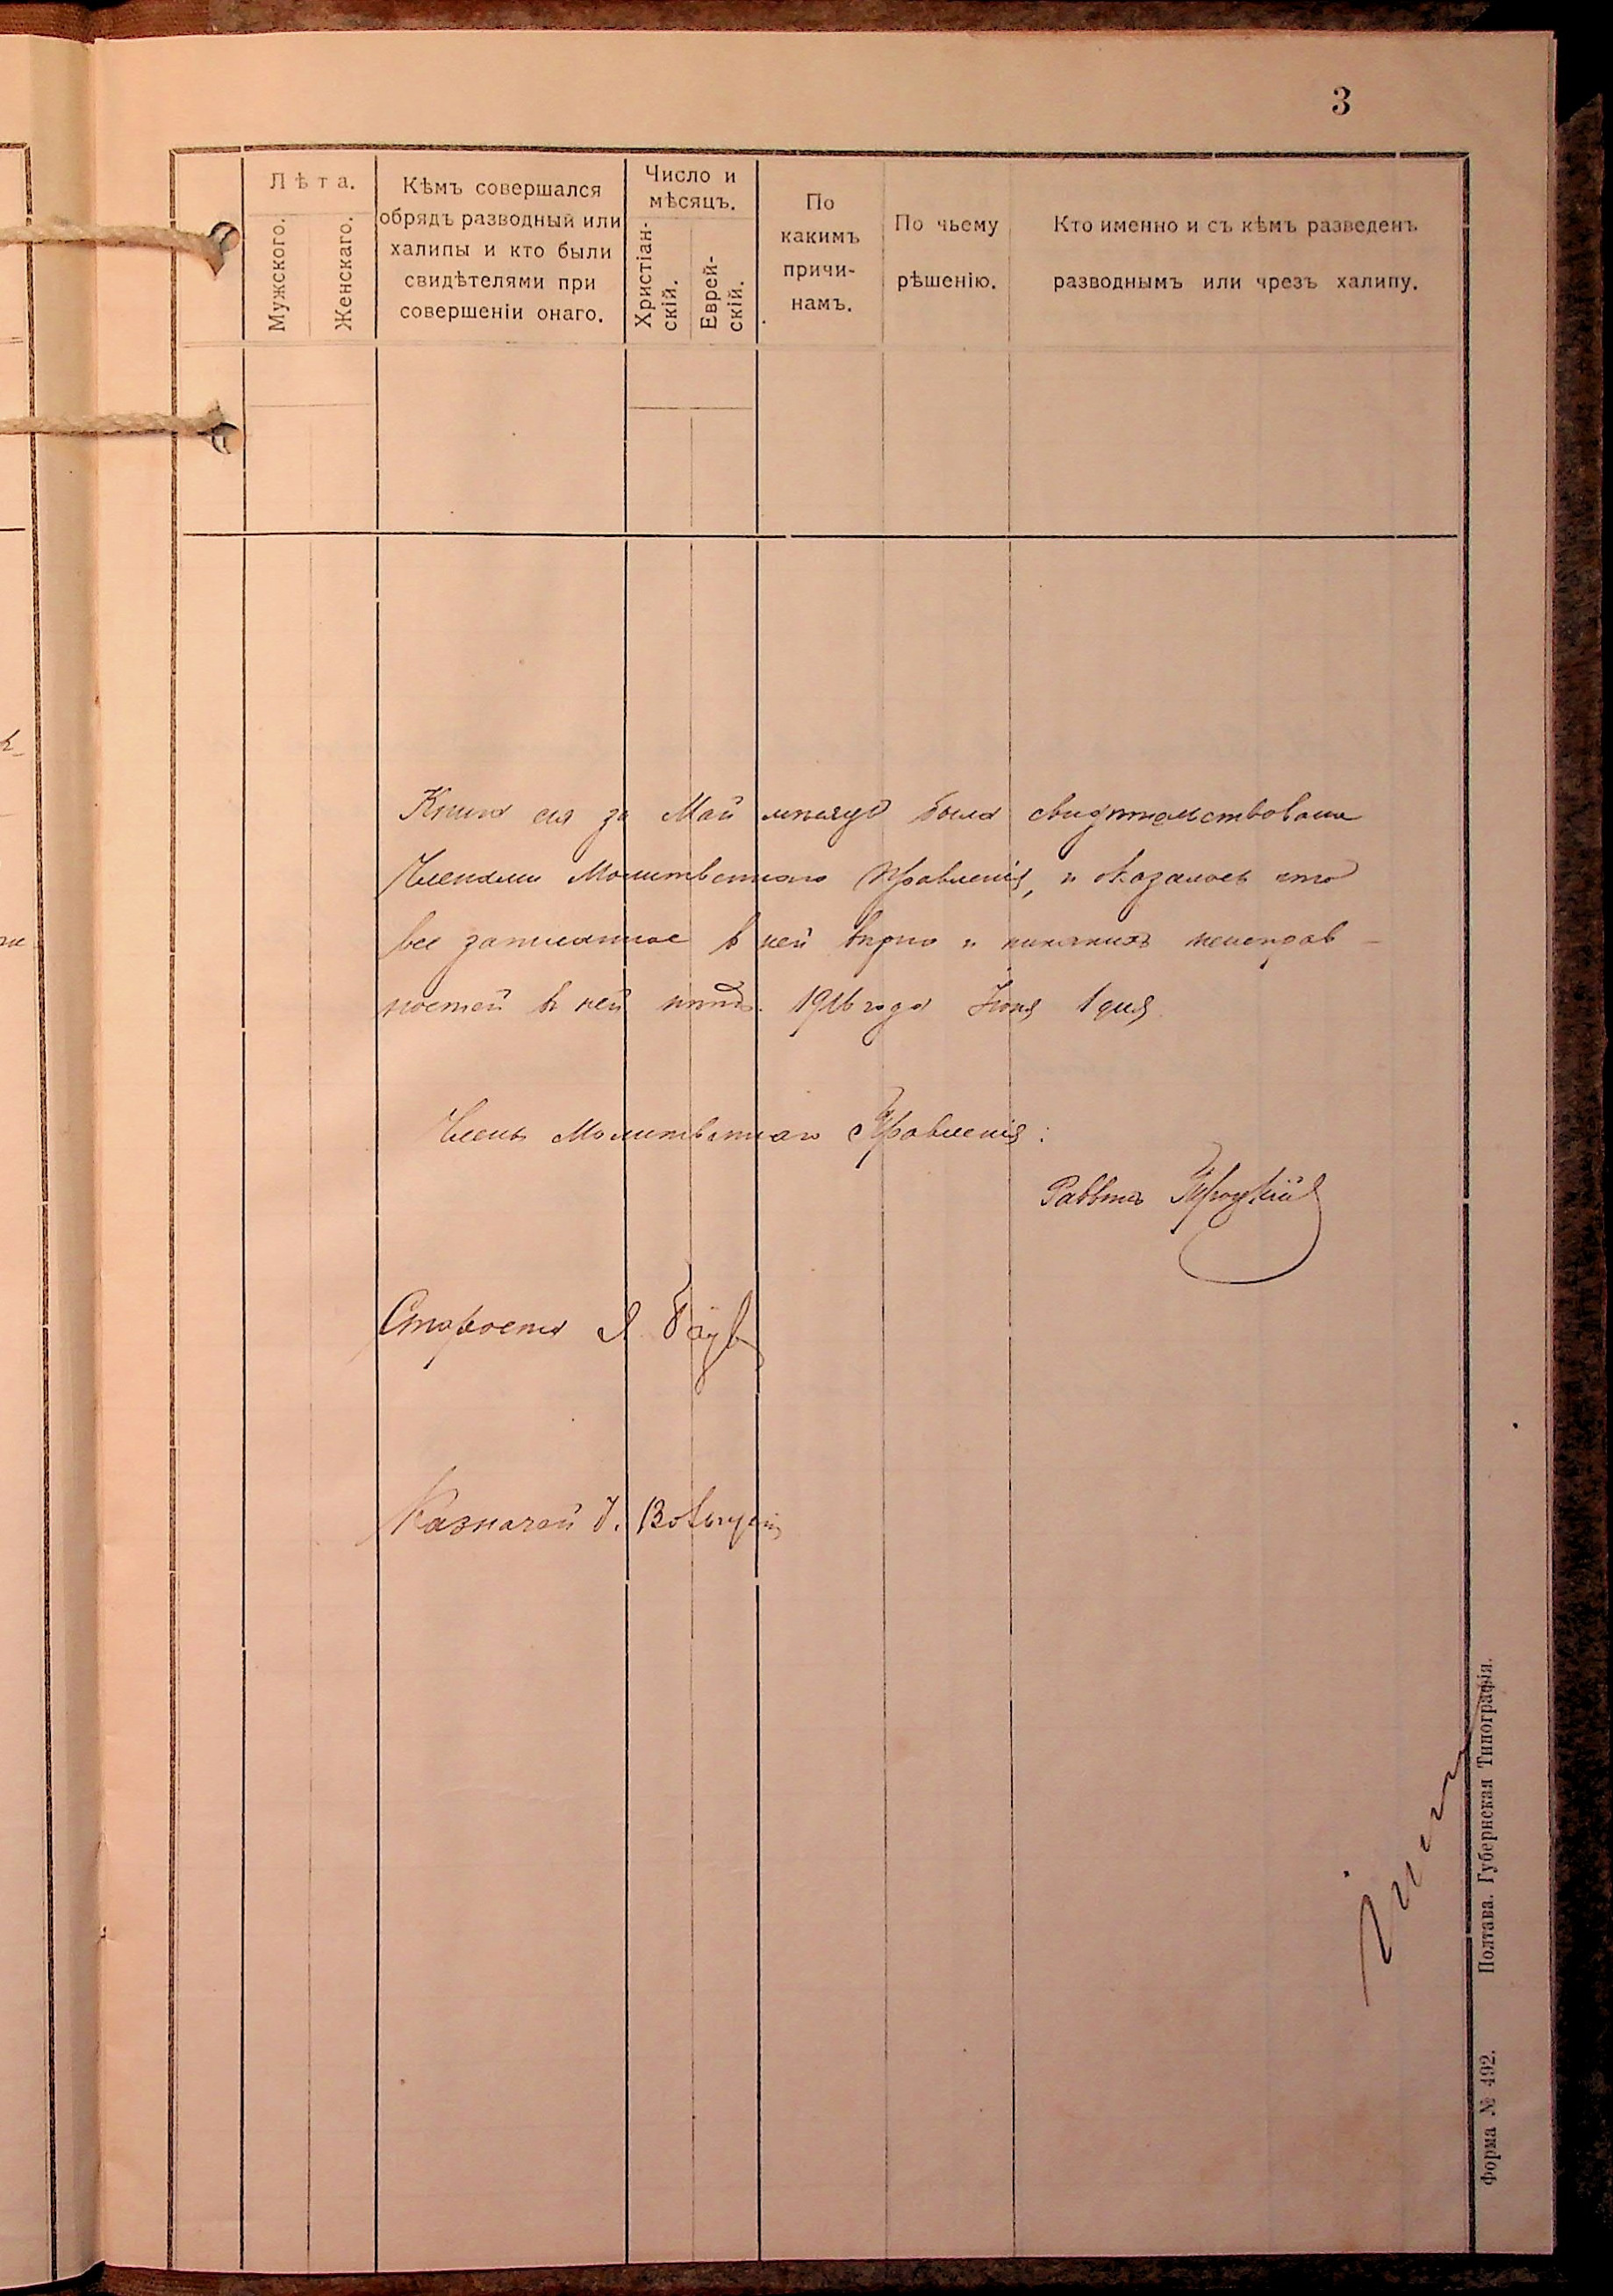 3
Лѣта.
Мужского.
Женскаго.
Кѣмъ совершался
обрядъ разводный или
халипы и кто были
свидѣтелями при
совершеніи онаго.
Число и
мѣсяцъ.
Христіан-
скій.
Еврей-
скій.
По
какимъ
причи-
намъ.
По чьему
рѣшенію.
Кто именно и съ кѣмъ разведенъ
разводнымъ или чрезъ халипу.
Книга сія за Май мѣсяцъ была свидѣтельствована
Членами Молитвеннаго Правленія, и оказалось что
все записанное в ней вѣрно и никакихъ неисправ-
ностей въ ней нѣтъ. 1916 года Іюня 1 дня
Члены Молитвеннаго Правленія:
Раввинъ
Староста
Казначей
Полтава. Губернская Типографія.
Форма № 492.